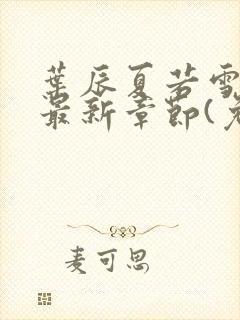 葉辰夏若雪
最新章節(
麦可思